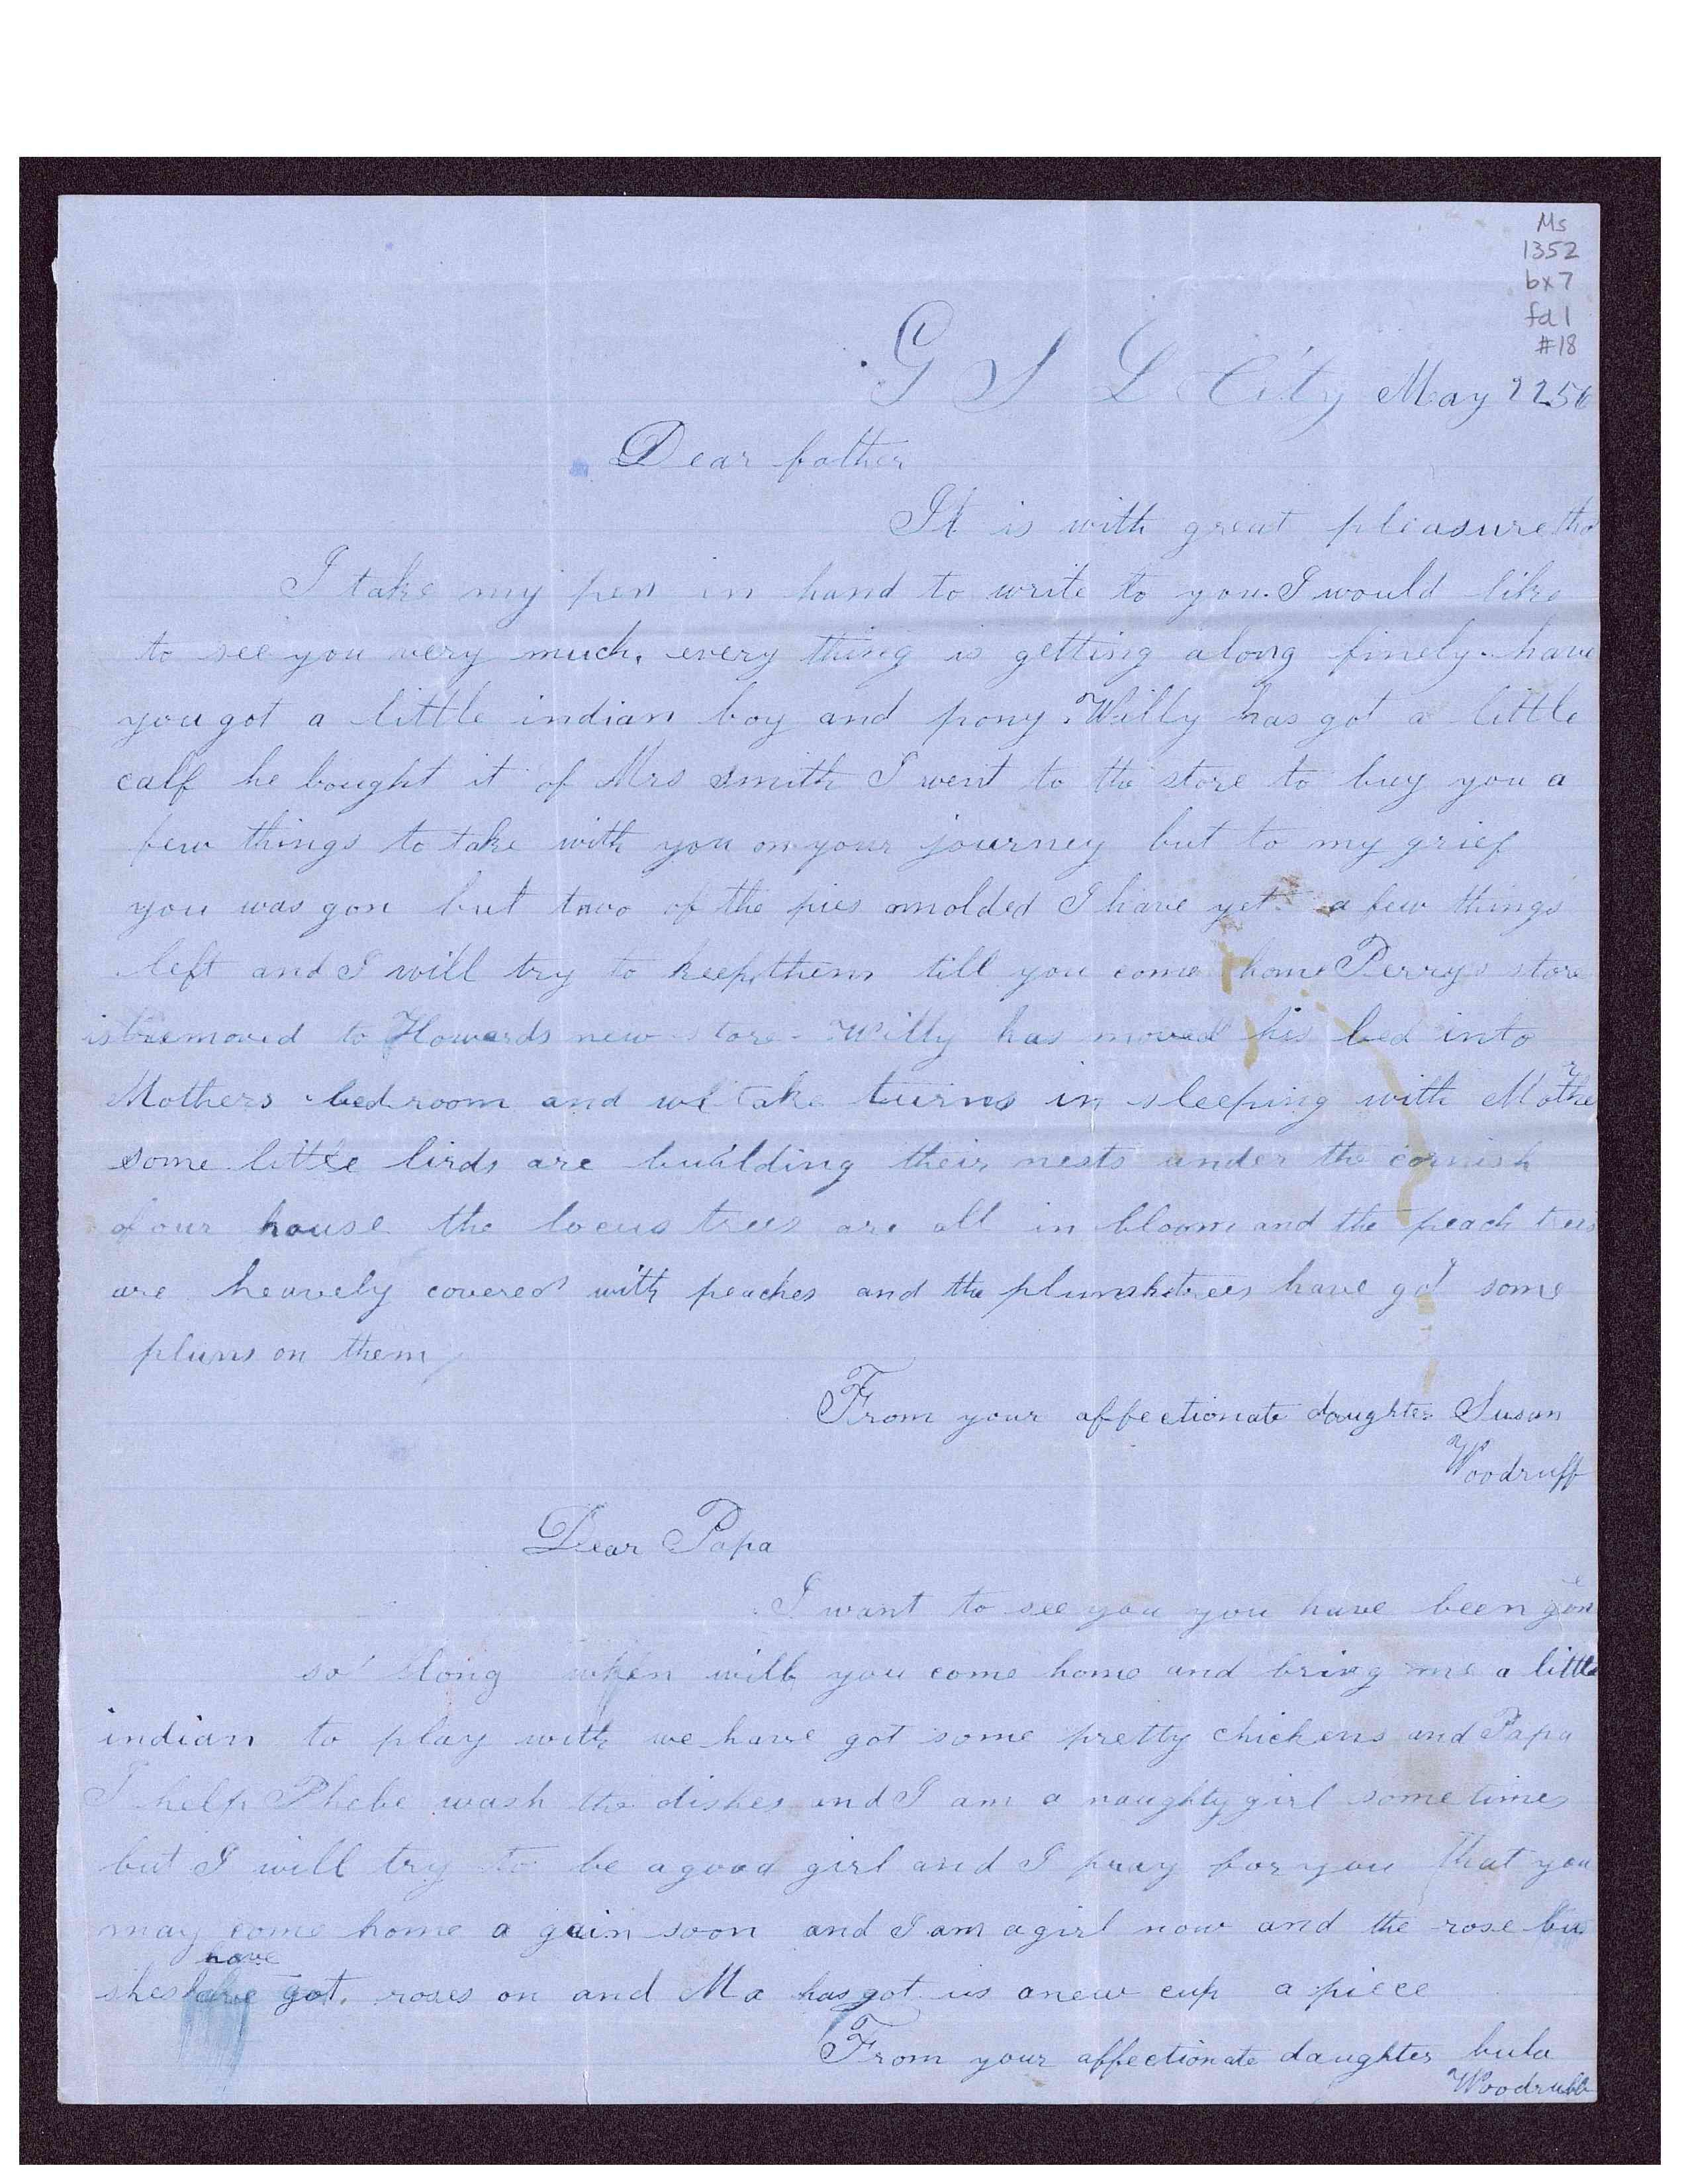 Ms
1352
bx 7
fd 1
#18
G S L City May 22 56
Dear father
It is with great pleasure tha
I take my pen in hand to write to you. I would like
to see you very much. every thing is getting along finely. have
you got a little indian boy and pony. Willy has got a little
calf he bought it of Mrs Smith I went to the store to buy you a
few things to take with you on your journey but to my grief
you was gon but two of the pies molded I have yet a few things
left and I will try to keep them till you come home Perrys store
is removed to Howards new store - Willy has moved his bed into
Mothers bedroom and we take turns in sleeping with Mother
some little birds are building their nests under the cornish
of our house the locus trees are all in bloom and the peach trees
are heavely covered with peaches and the trees have got some
plums on them
From your affectionate daughter Susan
Woodruff
Dear Papa
I want to see you you have been gon
so long when will you come home and bring me a little
indian to play with we have got some pretty chickens and Papa
I help Phebe wash the dishes and I am a naughty girl sometimes
but I will try to be a good girl and I pray for you that you
may come home a gain soon and I am a girl now and the rose bu
shes have got roses on and Ma has got us a new cup a piece
From your affectionate daughter bula
Woodruff